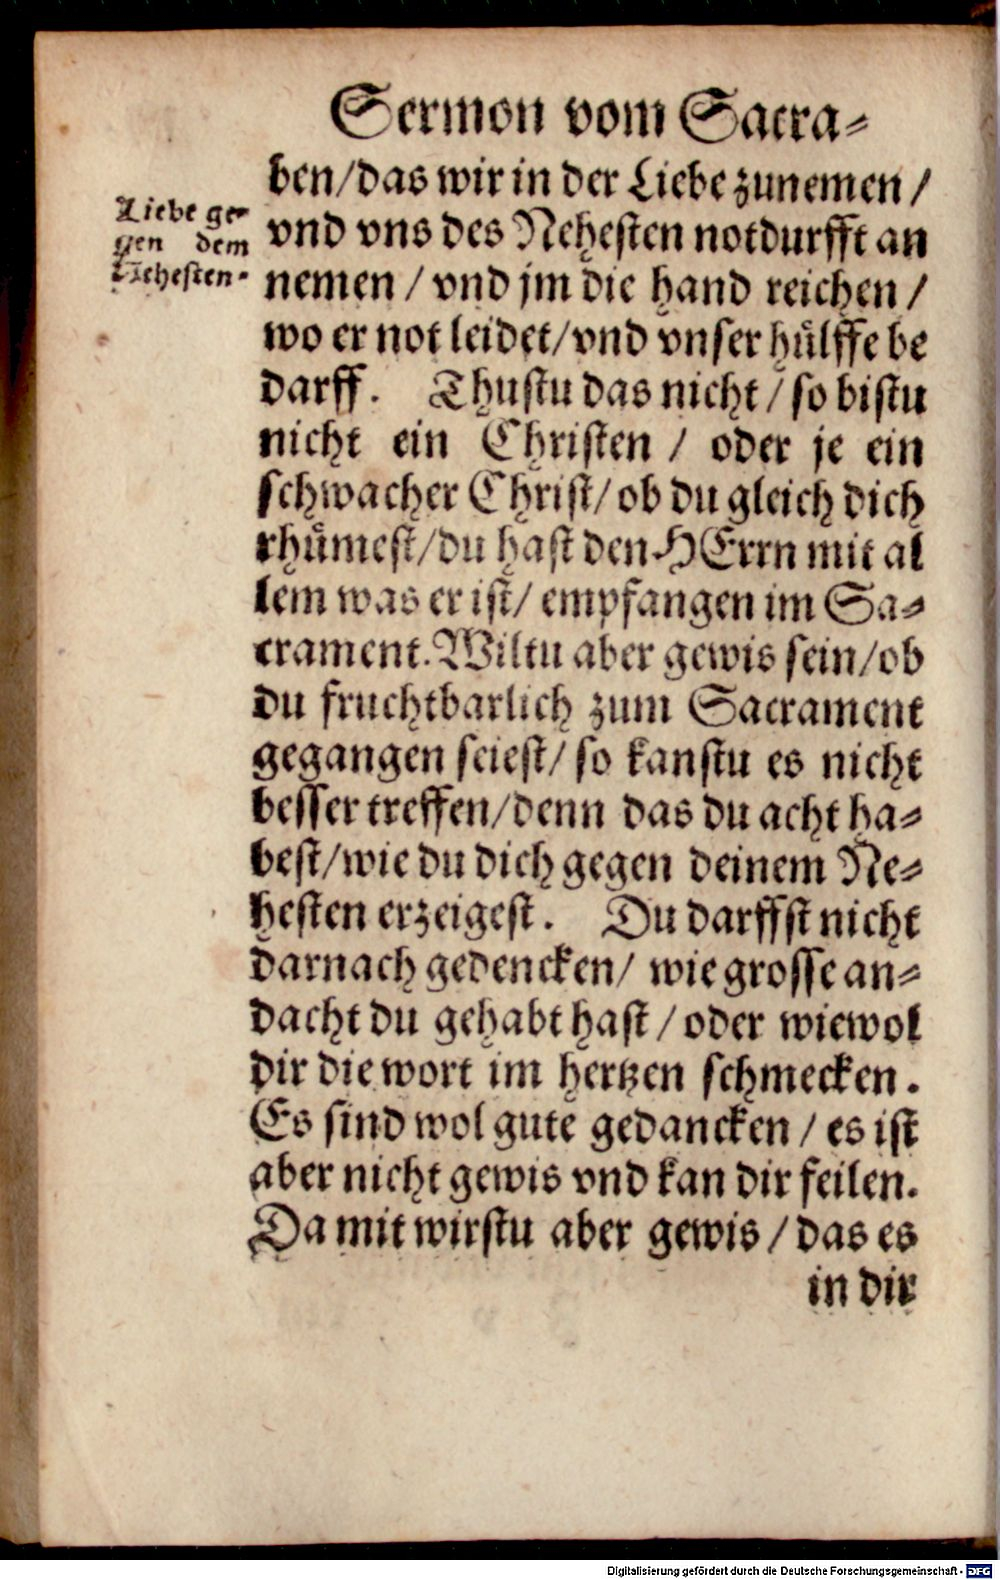 Sermon vom Sacra-
ben/das wir in der Liebe zunemen/
Liebe ge-
gen dem
Nehesten.
vnd vns des Nehesten notdurfft an
nemen / vnd jm die hand reichen /
wo er not leidet/vnd vnser hülffe be
darff. Thustu das nicht / so bistu
nicht ein Christen / oder je ein
schwacher Christ/ob du gleich dich
rhümest/du hast den HErrn mit al
lem was er ist/ empfangen im Sa-
crament. Wiltu aber gewis sein/ob
du fruchtbarlich zum Sacrament
gegangen seiest/ so kanstu es nicht
besser treffen/denn das du acht ha-
best/wie du dich gegen deinem Ne-
hesten erzeigest. Du darffst nicht
darnach gedencken/ wie grosse an-
dacht du gehabt hast / oder wiewol
dir die wort im hertzen schmecken.
Es sind wol gute gedancken / es ist
aber nicht gewis vnd kan dir feilen.
Da mit wirstu aber gewis / das es
in dir
Digitalisierung gefördert durch die Deutsche Forschungsgemeinschaft - DFG